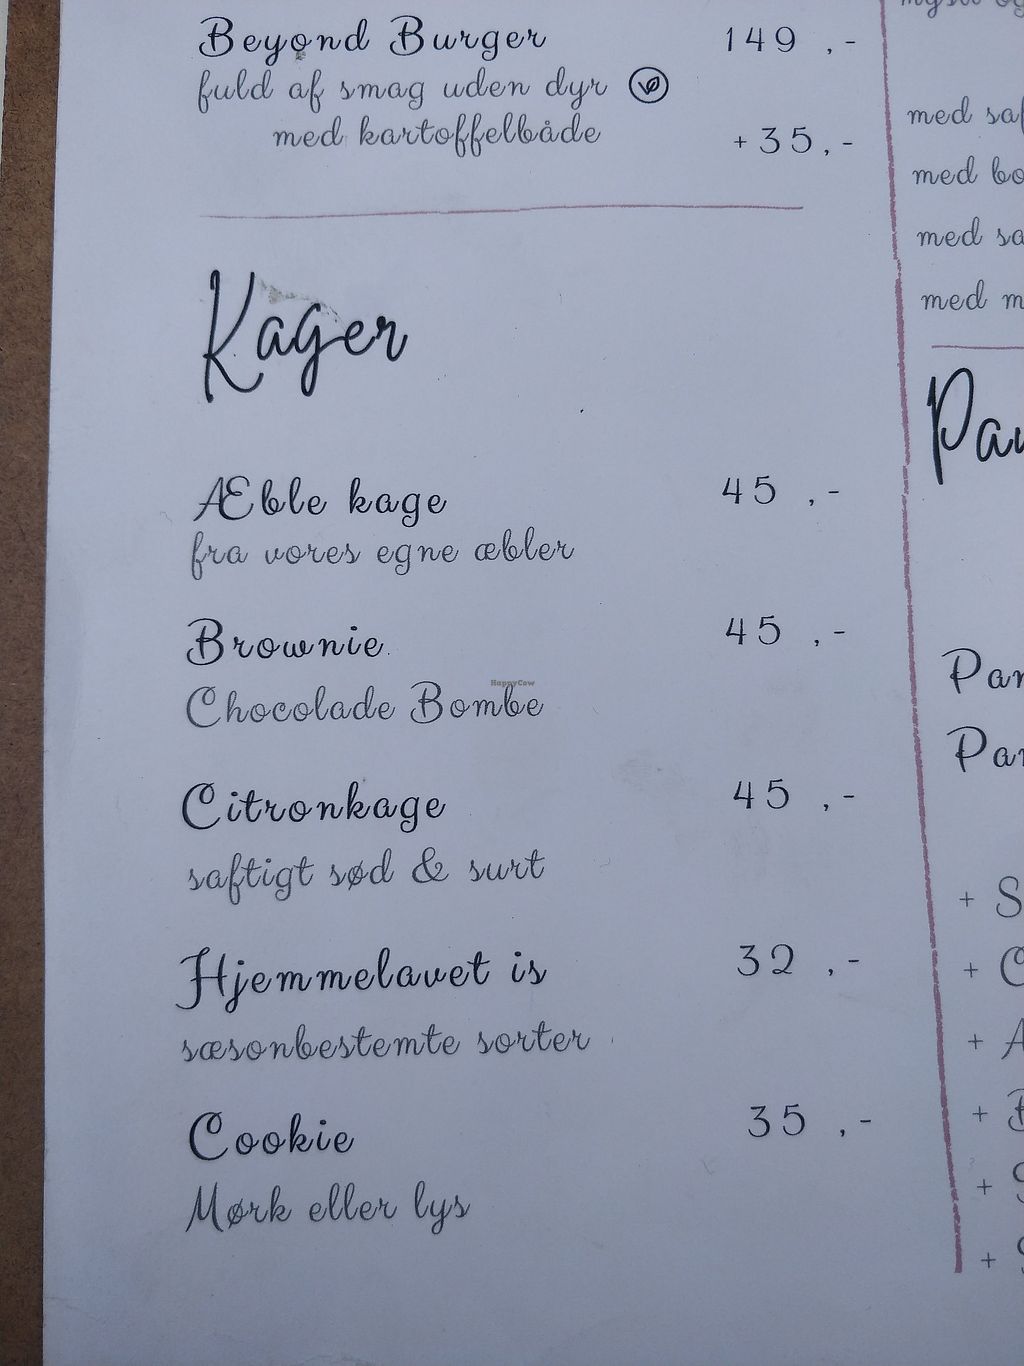 Beyond Burger 149 ,-
fuld af smag uden dyr
med kartoffelbåde +35,-
Kager
Æble kage 45 ,-
fra vores egne æbler
Brownie 45 ,-
Chocolade Bombe
Citronkage 45 ,-
saftigt sød & surt
Hjemmelavet is 32 ,-
sæsonbestemte sorter
Cookie 35 ,-
Mørk eller lys
HappyCow
med
med
med
med
+
+
+
+
+
+